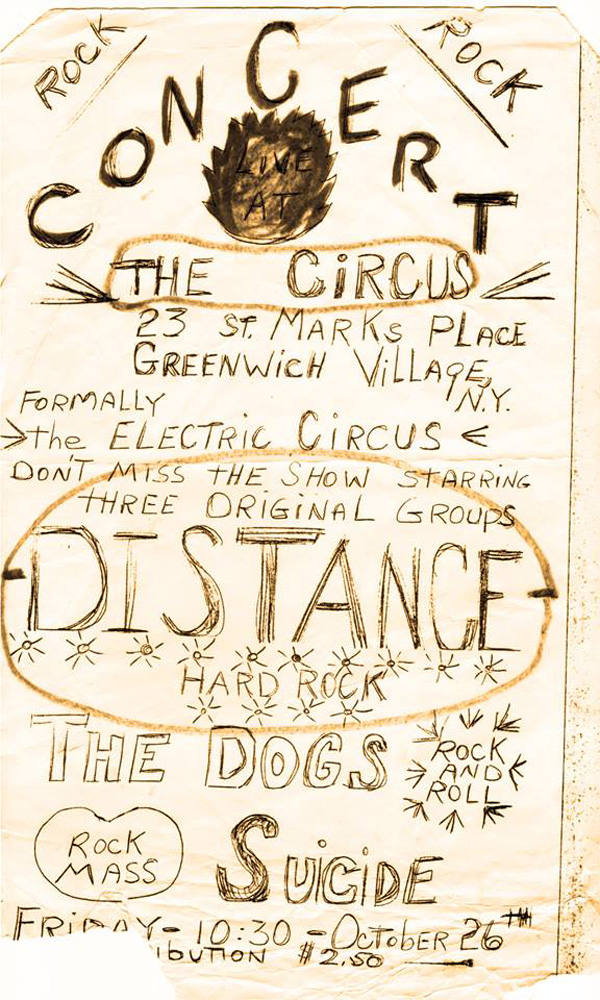 ROCK
ROCK
CONCERT
LIVE
AT
THE CiRCUS
23 ST. MARKS PLACE
GREENWiCH ViLLAgE,
N.Y.
FORMALLY
the ELECTRIC CiRCUS
DON'T MISS THE SHOW STARRING
THREE ORIGiNAL GROUPS
DISTANCE
HARD ROCK
THE DOGS
ROCK
AND
ROLL
ROCK
MASS
SUiCiDE
FRiDAY - 10:30 - OCTOBER 26TH
iBUTiON $2.50